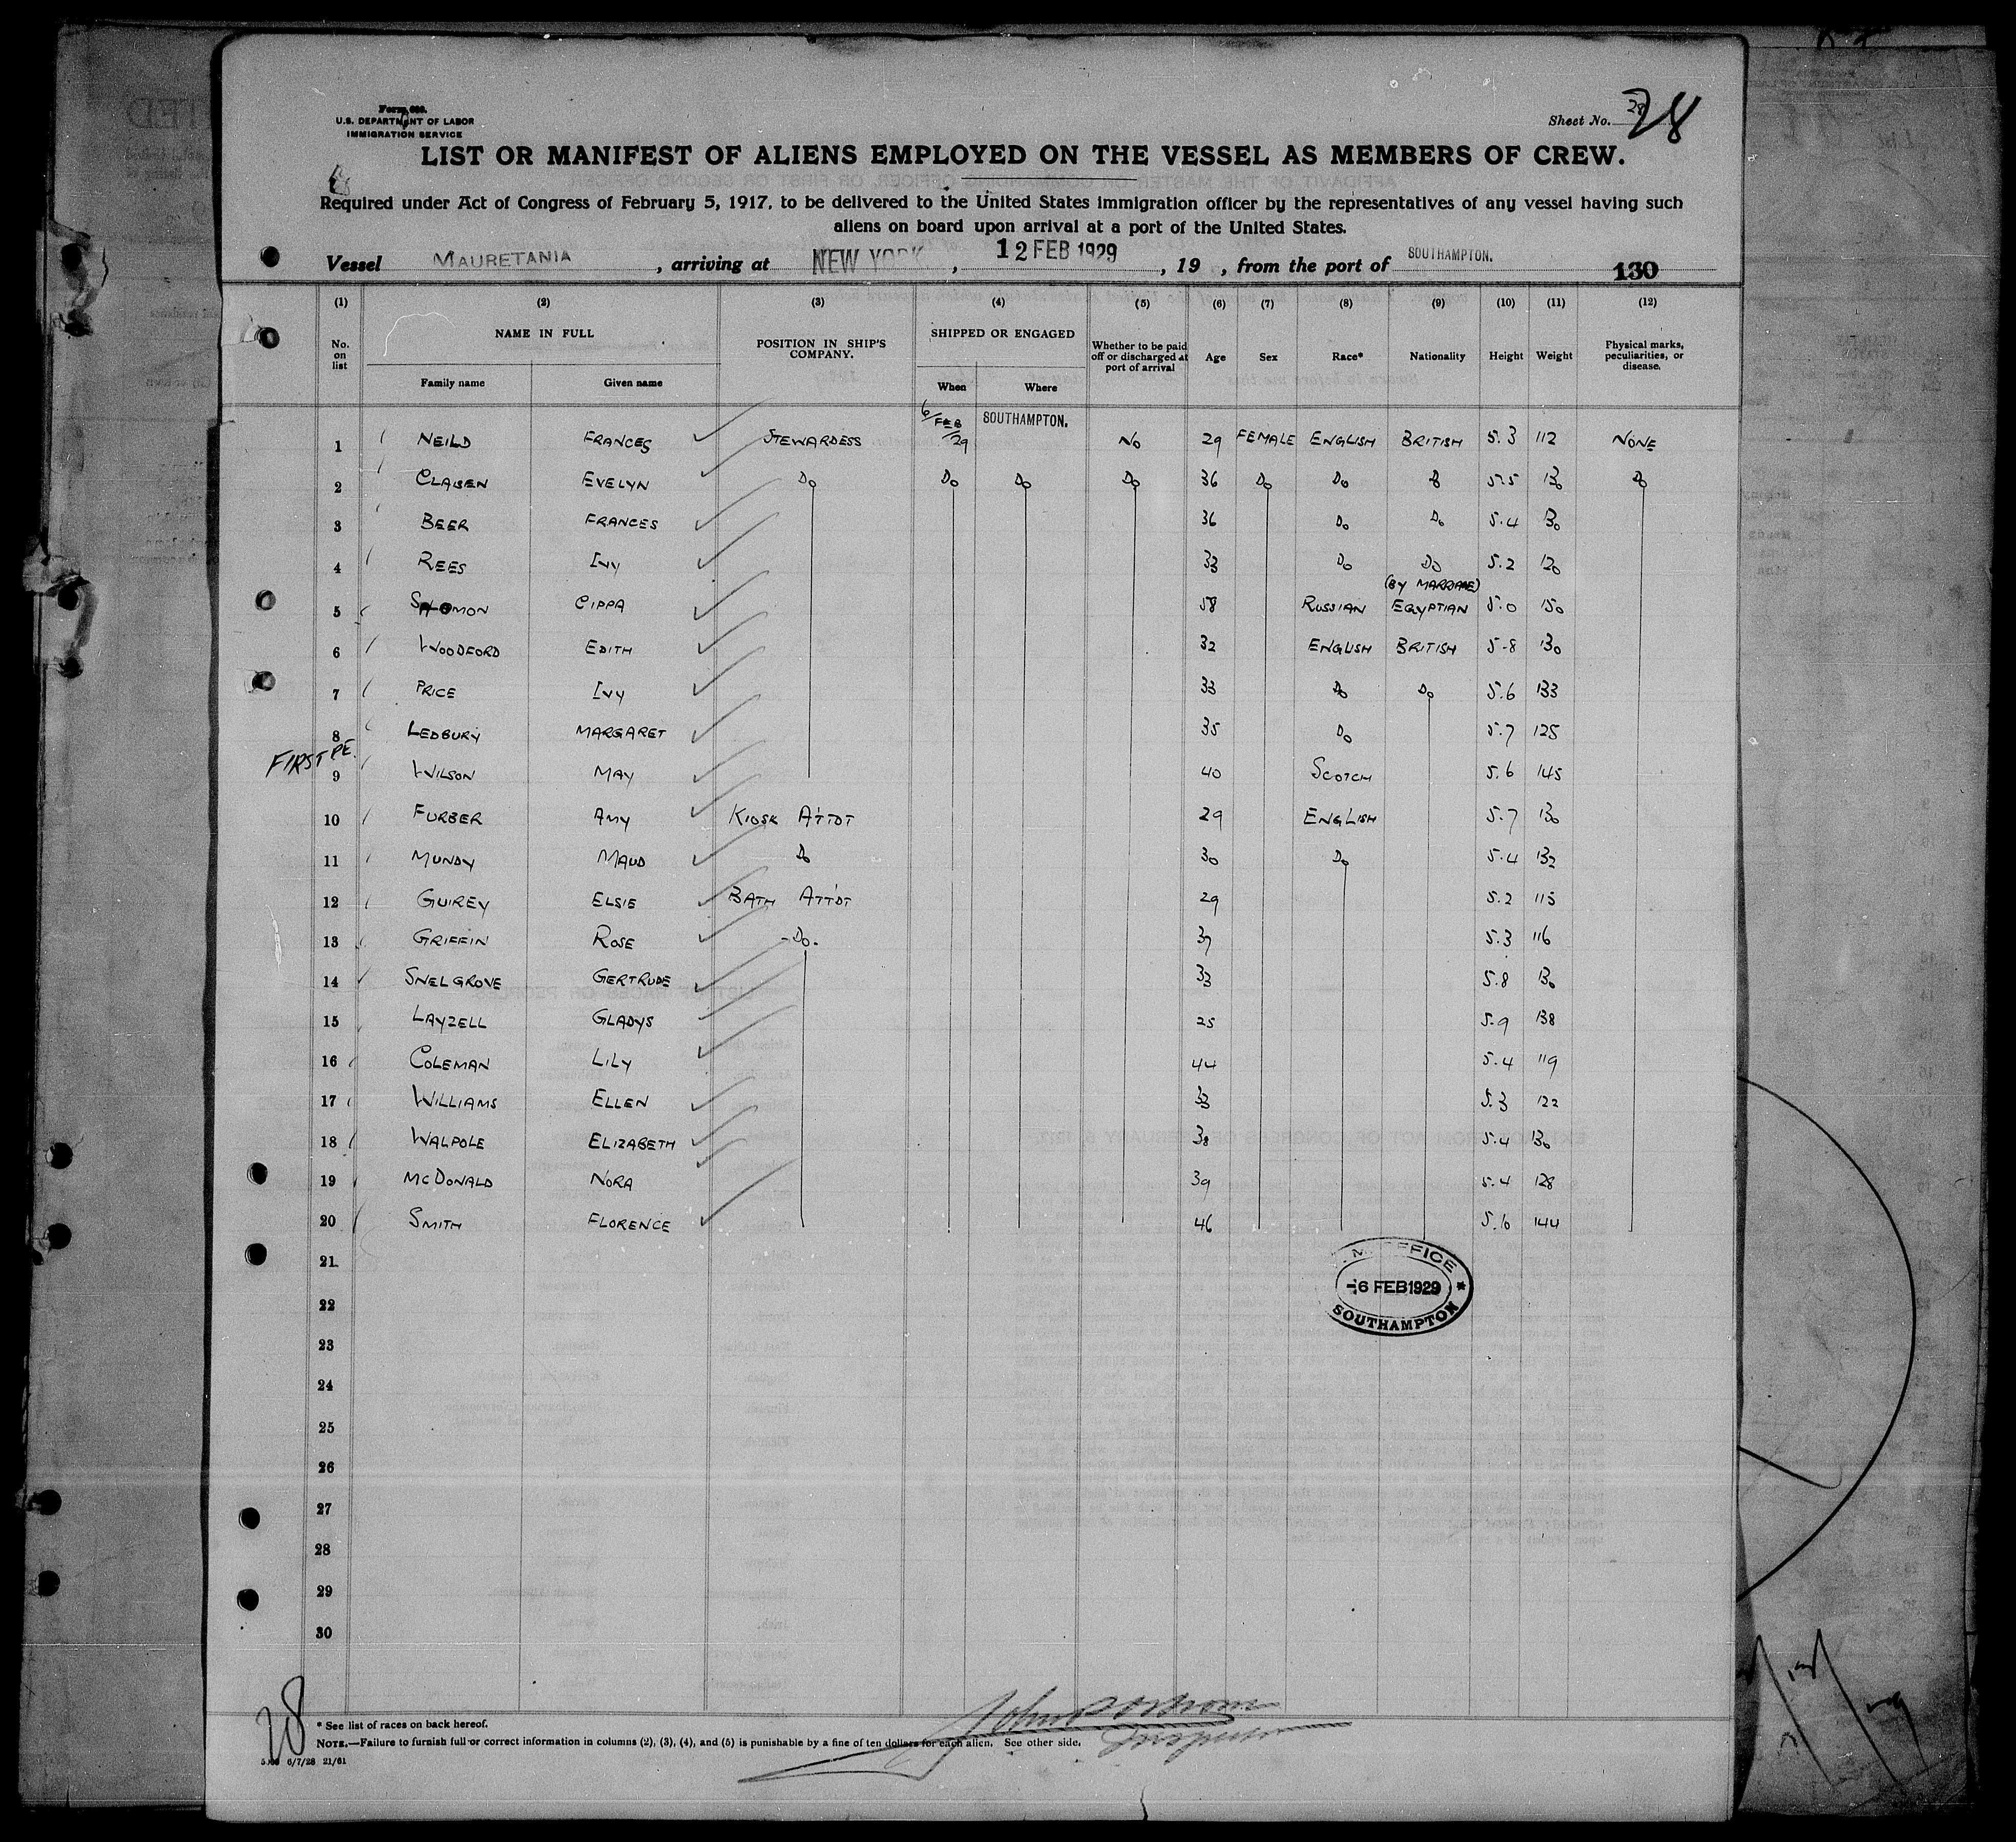 Form 680.
U.S. DEPARTMENT OF LABOR
IMMIGRATION SERVICE
Sheet No. 28 28
LIST OR MANIFEST OF ALIENS EMPLOYED ON THE VESSEL AS MEMBERS OF CREW.
Required under Act of Congress of February 5, 1917, to be delivered to the United States immigration officer by the representatives of any vessel having such
aliens on board upon arrival at a port of the United States.
Vessel MAURETANIA, arriving at NEW YORK, 12 FEB 1929, 19 , from the port of SOUTHAMPTON.
130
(1) (2) (3) (4) (5) (6) (7) (8) (9) (10) (11) (12)
No. on list NAME IN FULL POSITION IN SHIP'S COMPANY. SHIPPED OR ENGAGED Whether to be paid off or discharged at port of arrival Age Sex Race* Nationality Height Weight Physical marks, peculiarities, or disease.
Family name Given name When Where
1 NEILD FRANCES STEWARDESS 6/FEB/29 SOUTHAMPTON. NO 29 FEMALE ENGLISH BRITISH 5.3 112 NONE
2 CLABEN EVELYN Do Do Do Do 36 Do Do Do 5.5 130 Do
3 BEER FRANCES 36 Do Do 5.4 130
4 REES IVY 33 Do Do 5.2 120
(BY MARRIAGE)
5 SALOMON CIPPA 58 RUSSIAN EGYPTIAN 5.0 150
6 WOODFORD EDITH 32 ENGLISH BRITISH 5-8 130
7 PRICE IVY 33 Do Do 5.6 133
8 LEDBURY MARGARET 35 Do 5.7 125
FIRST PE.
9 WILSON MAY 40 SCOTCH 5.6 145
10 FURBER AMY KIOSK ATTDT 29 ENGLISH 5.7 130
11 MUNDY MAUD Do 30 Do 5.4 132
12 GUIREY ELSIE BATH ATTDT 29 5.2 115
13 GRIFFIN ROSE -Do. 37 5.3 116
14 SNELGROVE GERTRUDE 33 5.8 130
15 LAYZELL GLADYS 25 5.9 138
16 COLEMAN LILY 44 5.4 119
17 WILLIAMS ELLEN 33 5.3 122
18 WALPOLE ELIZABETH 38 5.4 130
19 McDONALD NORA 39 5.4 128
20 SMITH FLORENCE 46 5.6 144
21
22
23
24
25
26
27
28
29
30
OFFICE
-6 FEB 1929
SOUTHAMPTON
28
* See list of races on back hereof.
NOTE.—Failure to furnish full or correct information in columns (2), (3), (4), and (5) is punishable by a fine of ten dollars for each alien. See other side.
Inspector
6/7/28 21/61